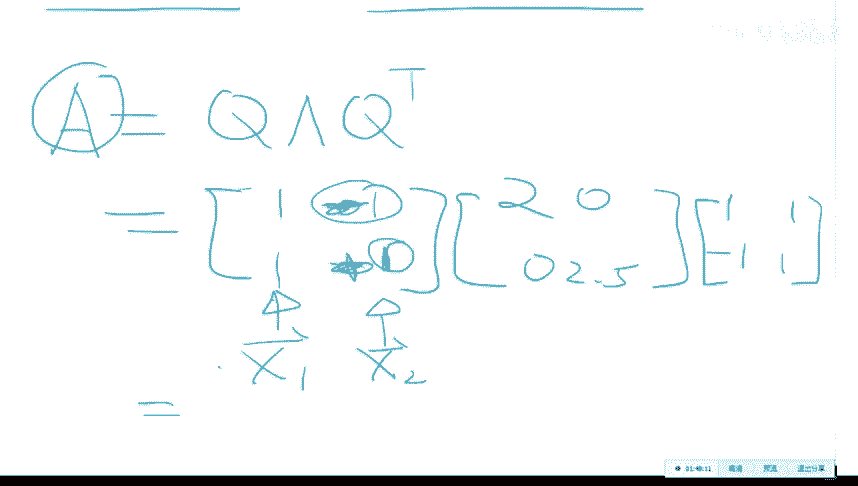 A = Q Λ Q^T
= [1 1; 1 0] [2 0; 0 2.5] [1 1; -1 1]
x⃗₁ x⃗₂
=
01:48:11 退出分享